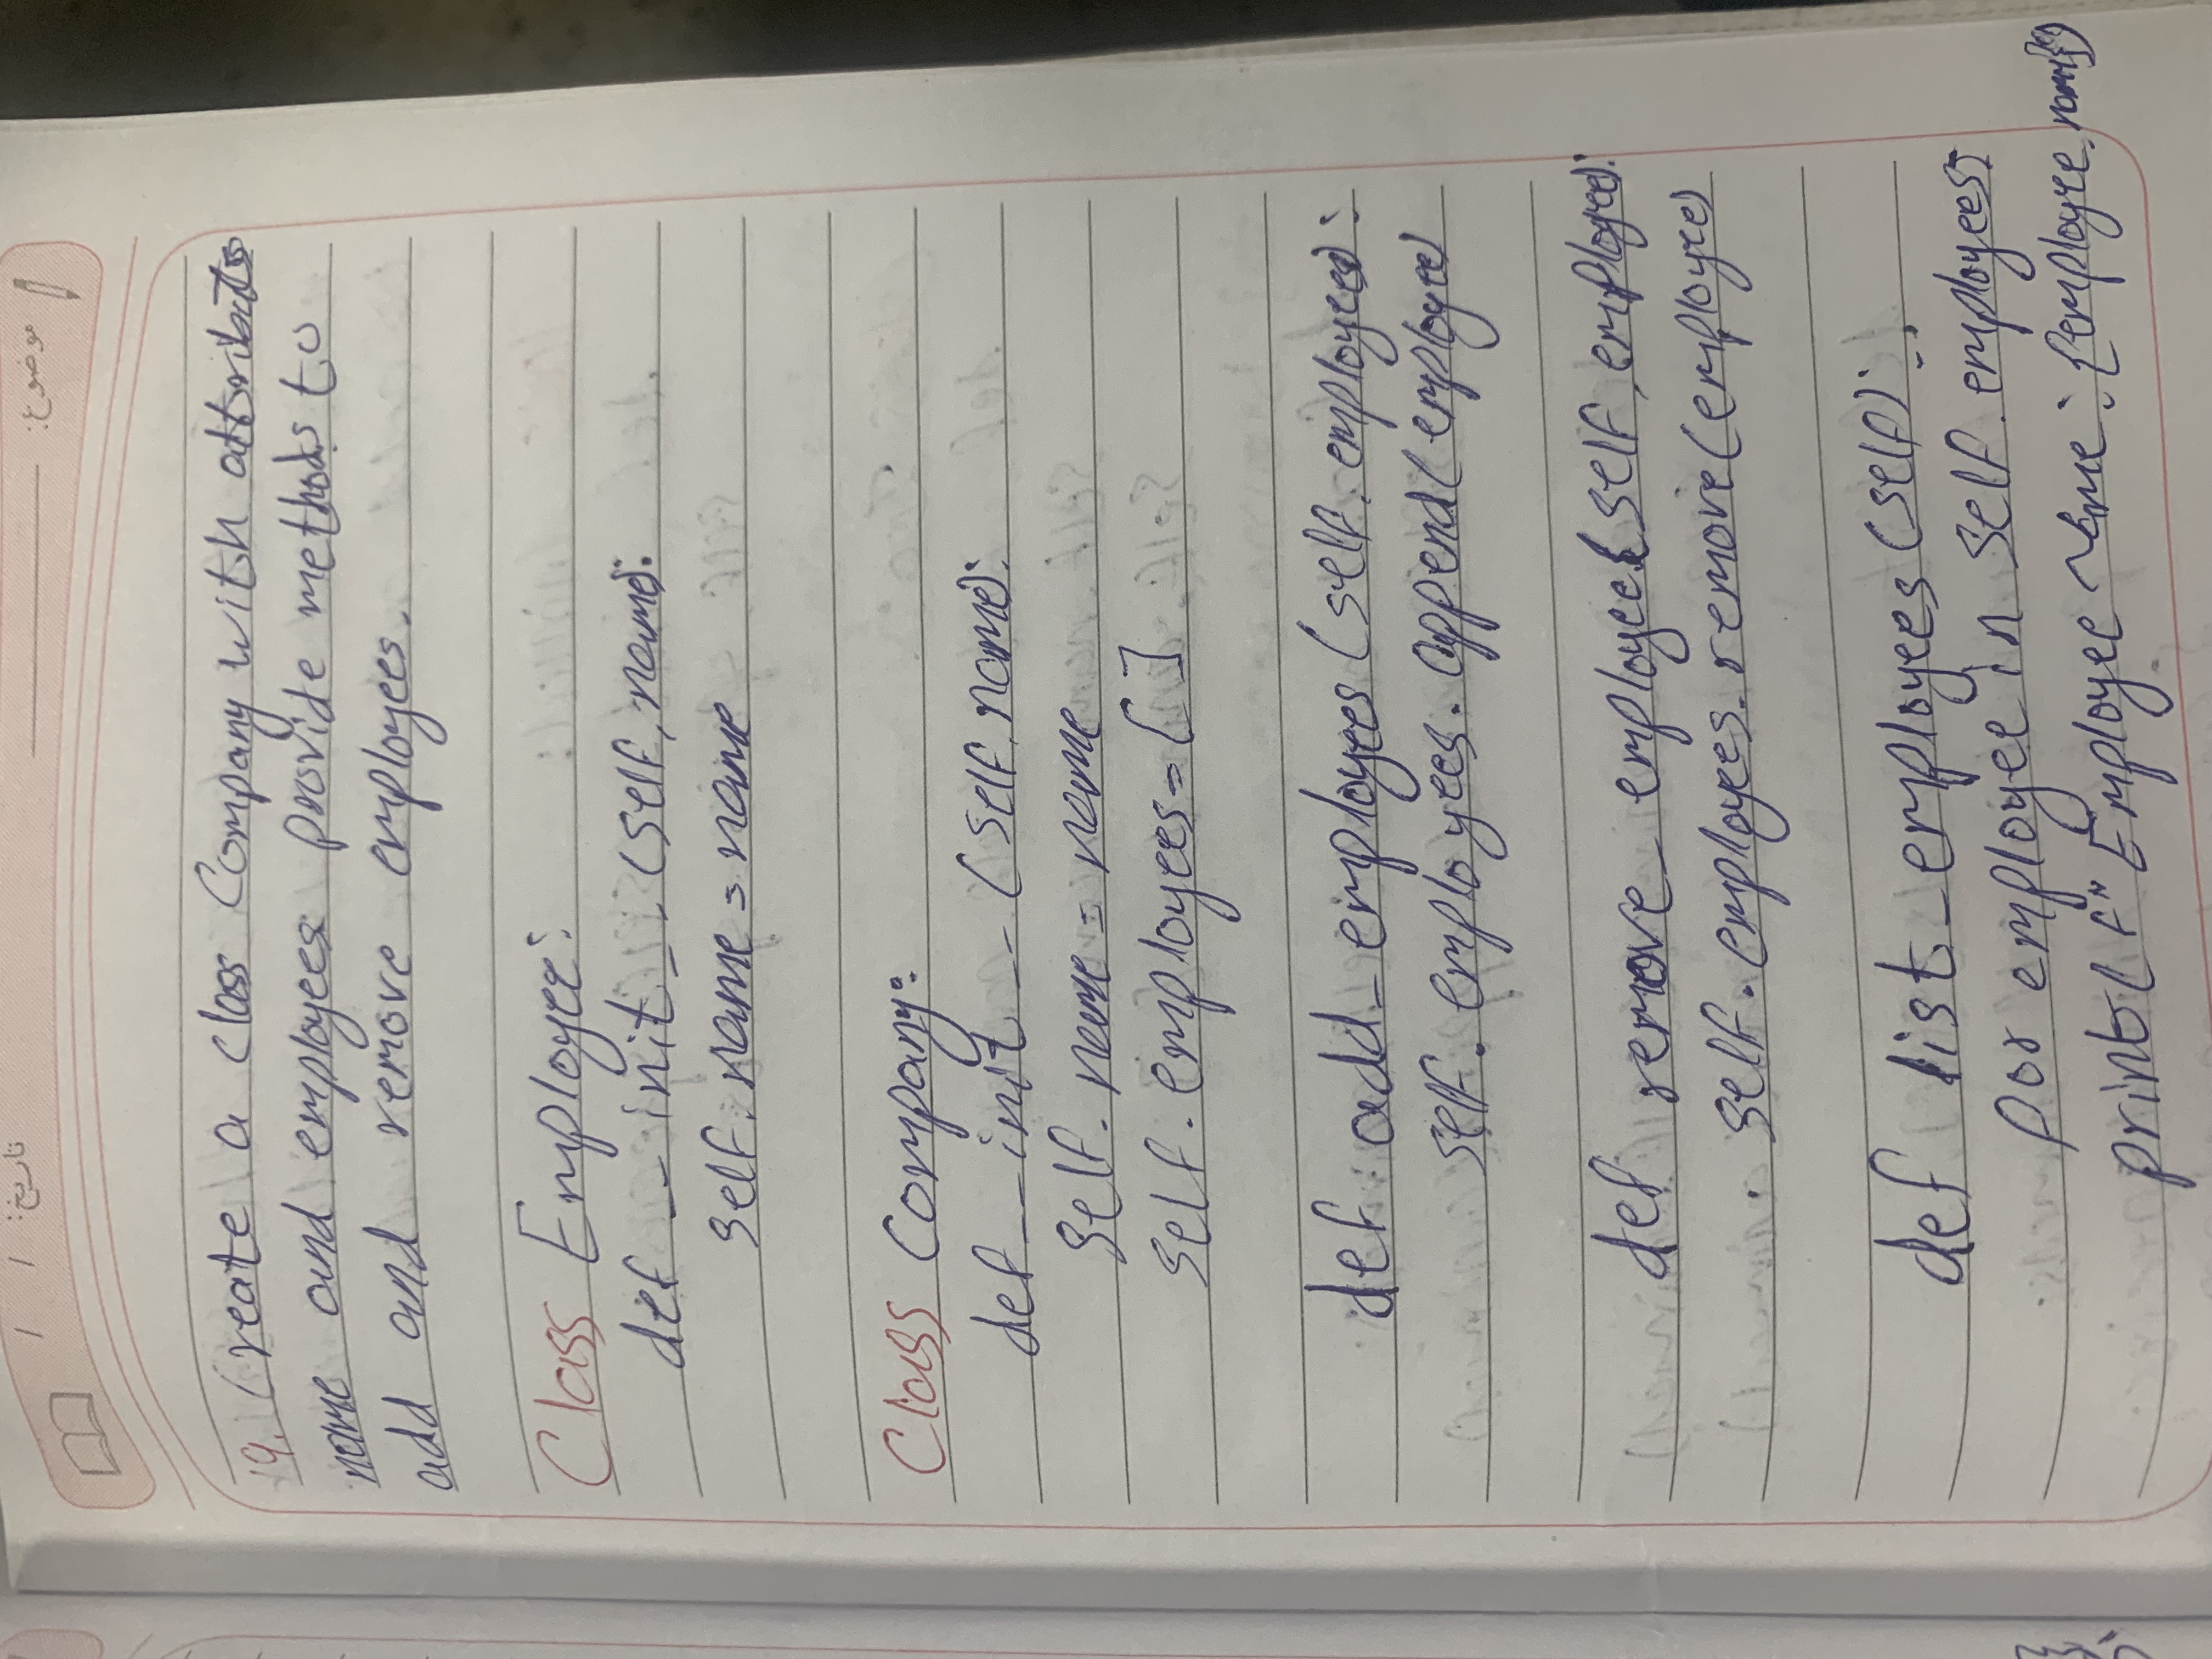 موضوع: تاریخ: / /
19. Create a class Company with attributes
name and employees provide methods to
add and remove employees.
Class Employee:
def __init__(self, name):
self.name = name
Class Company:
def __init__(self, name):
self.name = name
self.employees = []
def add_employees(self, employee):
self.employees.append(employee)
def remove_employee(self, employee):
self.employees.remove(employee)
def list_employees(self):
for employee in self.employees:
print(f"Employee Name: {employee.name})